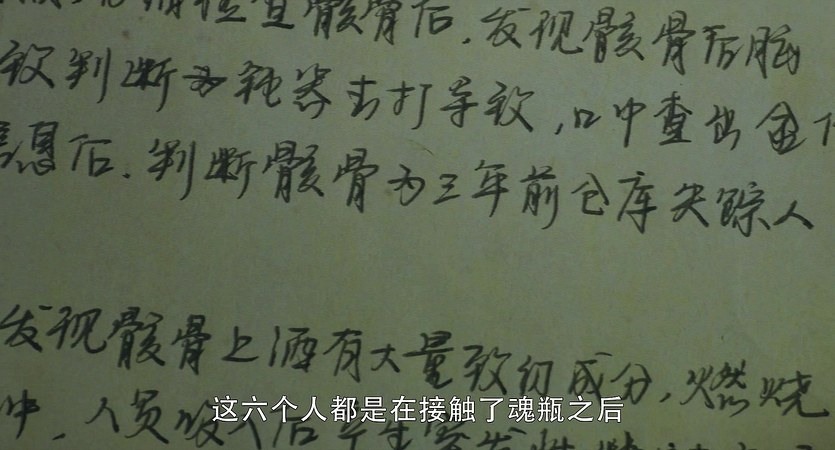 检查骸骨后,发现骸骨后脑
致判断为钝器击打导致,口中查出金
息后,判断骸骨为三年前仓库失踪人
发现骸骨上洒有大量致幻成分,燃烧
中,人员吸入后
这六个人都是在接触了魂瓶之后